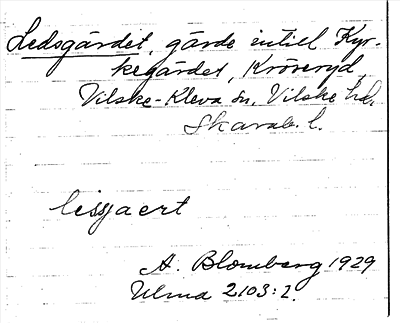 Ledsgärdet, gärde intill Kyr-
kegärdet, Kröseryd,
Vilske-Kleva sn, Vilske hd.
Skarab. l.
A. Blomberg 1929
Ulma 2103:2.